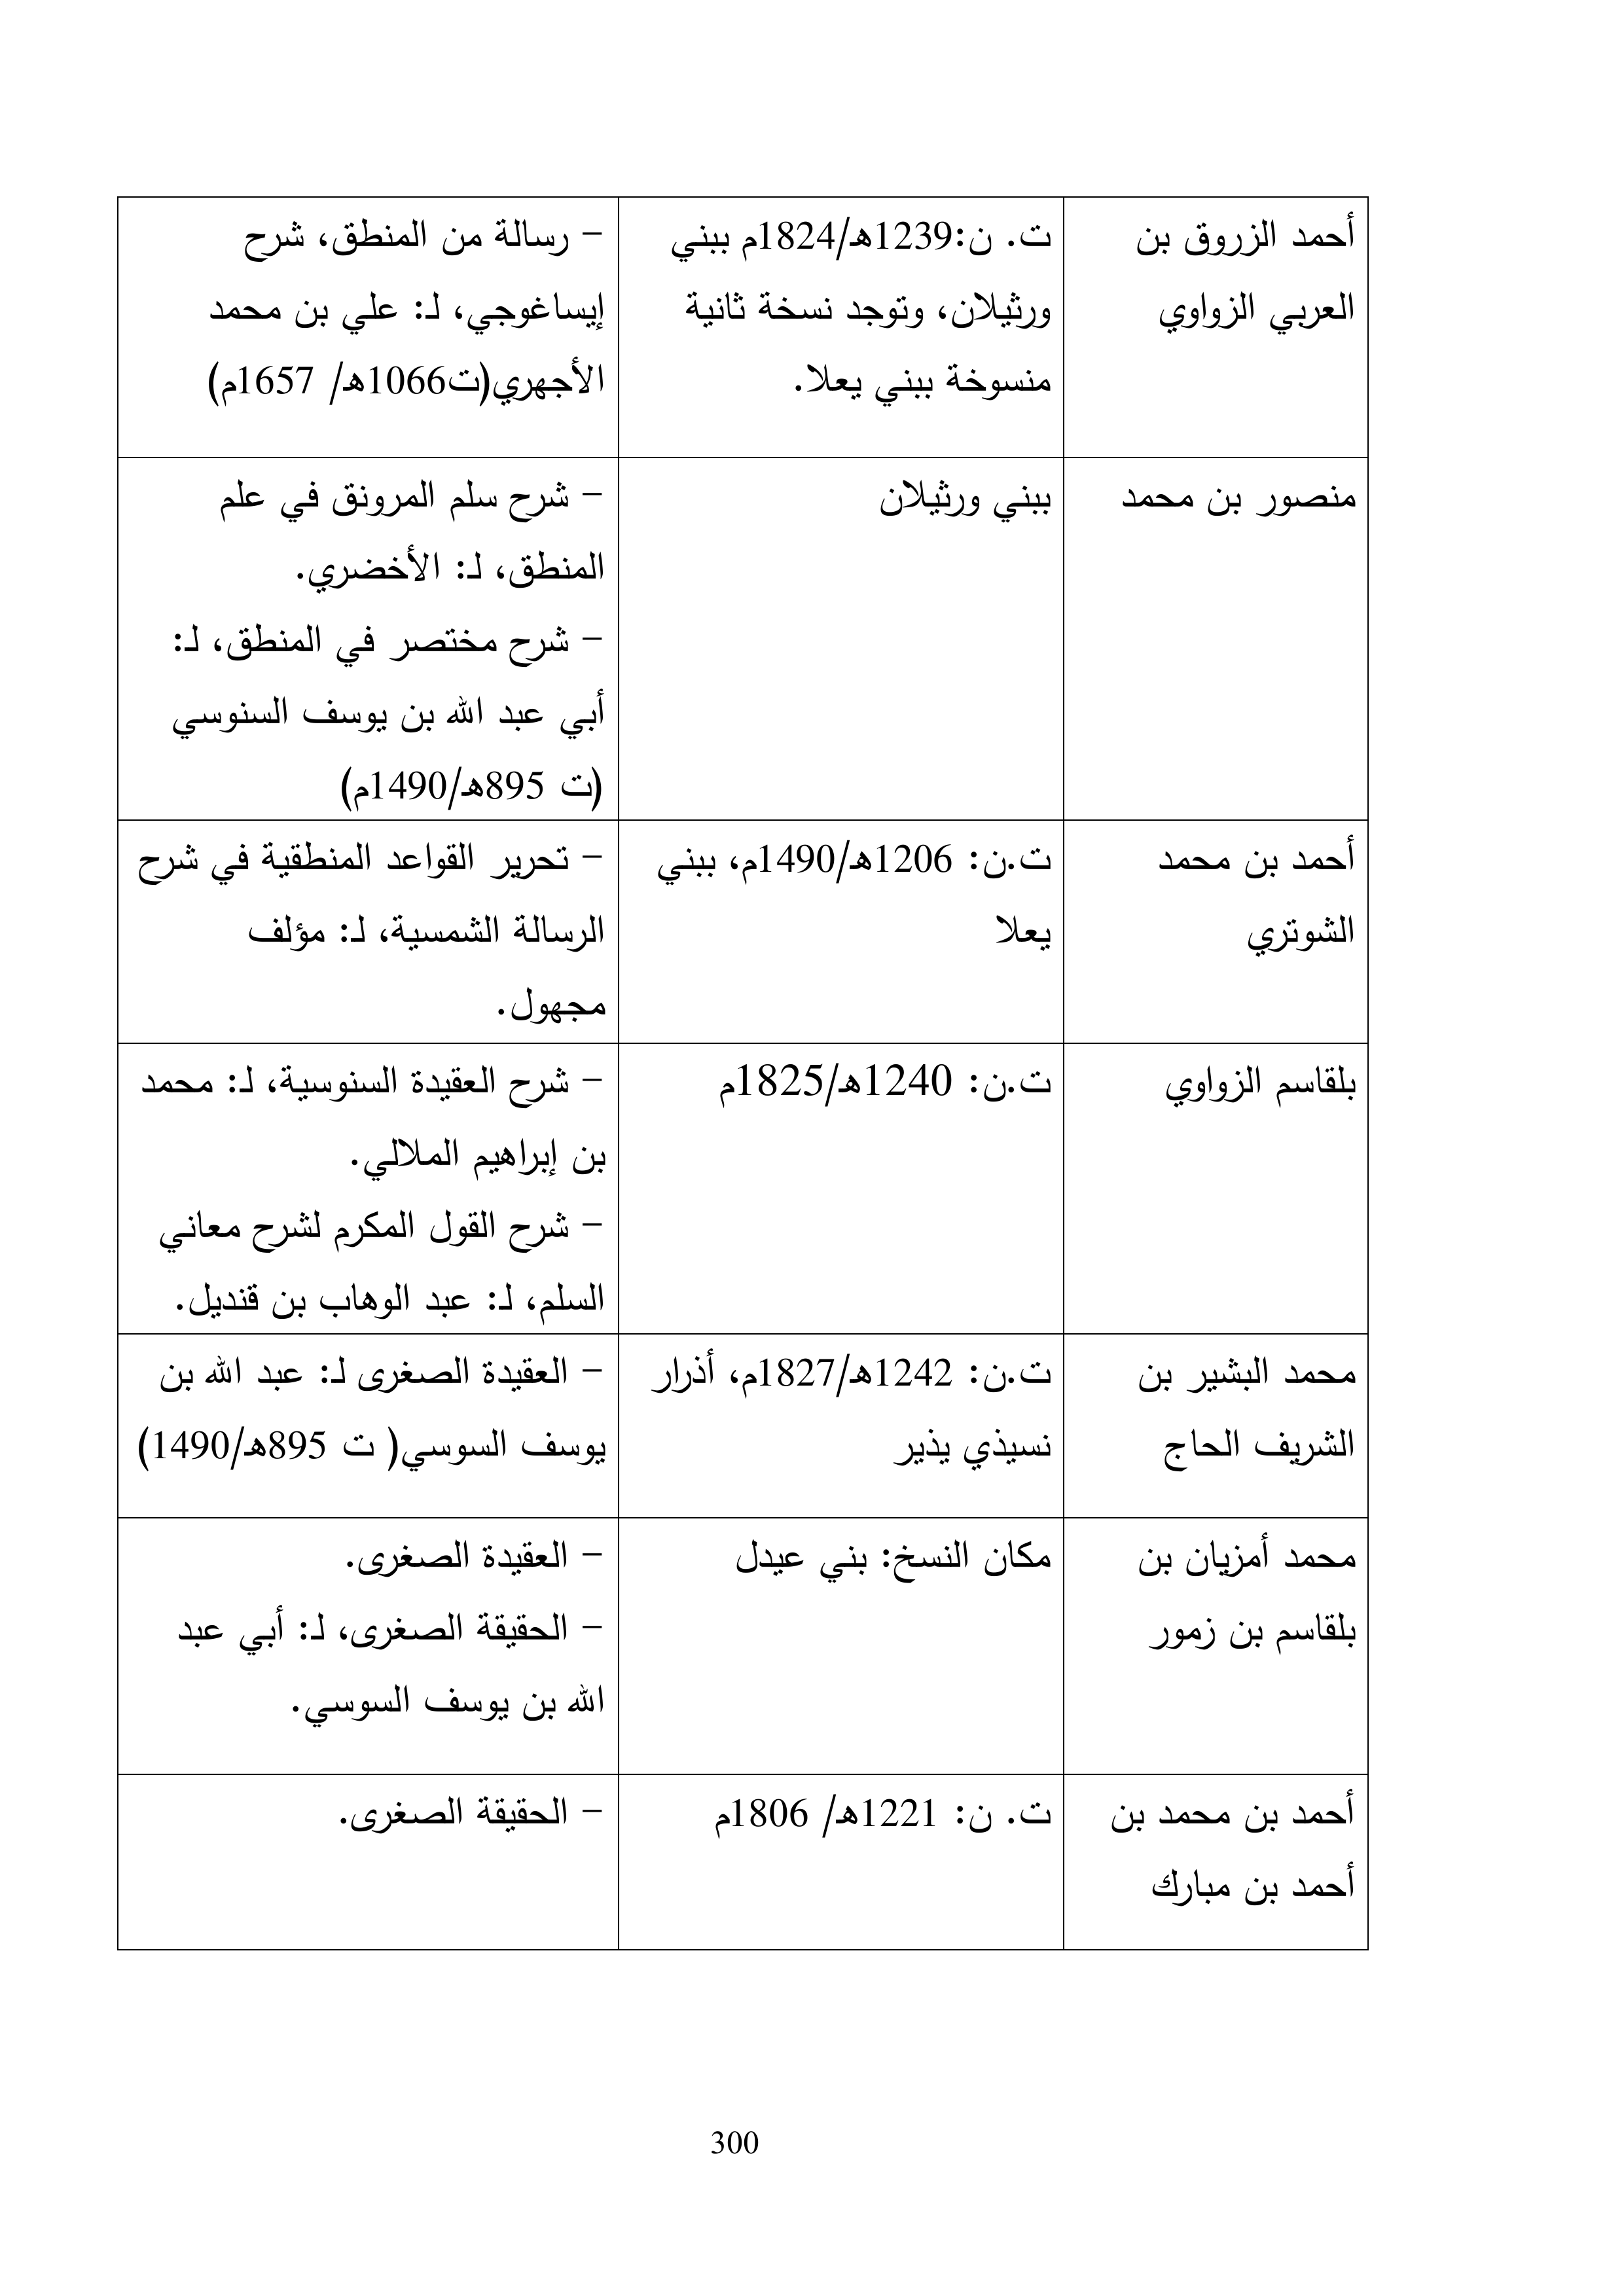 أحمد الزروق بن
العربي الزواوي
ت. ن:1239هـ/1824م ببني
ورثيلان، وتوجد نسخة ثانية
منسوخة ببني يعلا.
– رسالة من المنطق، شرح
إيساغوجي، لـ: علي بن محمد
الأجهري(ت1066هـ/ 1657م)
منصور بن محمد
ببني ورثيلان
– شرح سلم المرونق في علم
المنطق، لـ: الأخضري.
– شرح مختصر في المنطق، لـ:
أبي عبد الله بن يوسف السنوسي
(ت 895هـ/1490م)
أحمد بن محمد
الشوتري
ت.ن: 1206هـ/1490م، ببني
يعلا
– تحرير القواعد المنطقية في شرح
الرسالة الشمسية، لـ: مؤلف
مجهول.
بلقاسم الزواوي
ت.ن: 1240هـ/1825م
– شرح العقيدة السنوسية، لـ: محمد
بن إبراهيم الملالي.
– شرح القول المكرم لشرح معاني
السلم، لـ: عبد الوهاب بن قنديل.
محمد البشير بن
الشريف الحاج
ت.ن: 1242هـ/1827م، أذرار
نسيذي يذير
– العقيدة الصغرى لـ: عبد الله بن
يوسف السوسي( ت 895هـ/1490)
محمد أمزيان بن
بلقاسم بن زمور
مكان النسخ: بني عيدل
– العقيدة الصغرى.
– الحقيقة الصغرى، لـ: أبي عبد
الله بن يوسف السوسي.
أحمد بن محمد بن
أحمد بن مبارك
ت. ن: 1221هـ/ 1806م
– الحقيقة الصغرى.
300